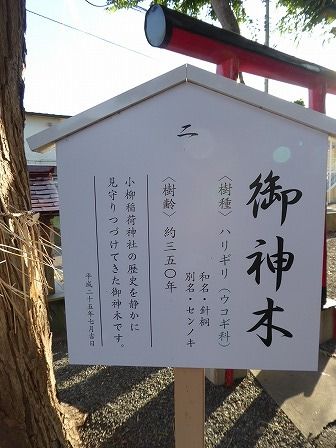 御神木
二
〈樹種〉ハリギリ(ウコギ科)
和名・針桐
別名・センノキ
〈樹齢〉約三五〇年
小柳稲荷神社の歴史を静かに
見守りつづけてきた御神木です。
平成二十五年七月吉日